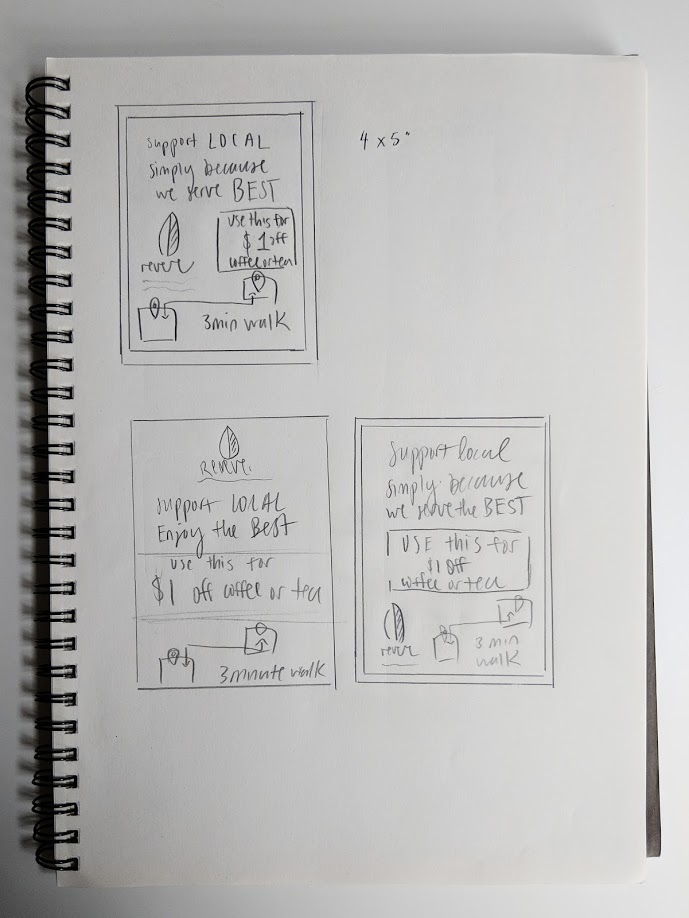 support LOCAL
simply because
we serve BEST
use this for
$1 off
coffee or tea
revere
3min walk
4 x 5"
Revere.
support LOCAL
Enjoy the BEST
use this for
$1 off coffee or tea
3 minute walk
support local
simply because
we serve the BEST
USE this for
$1 off
coffee or tea
revere
3 min
walk